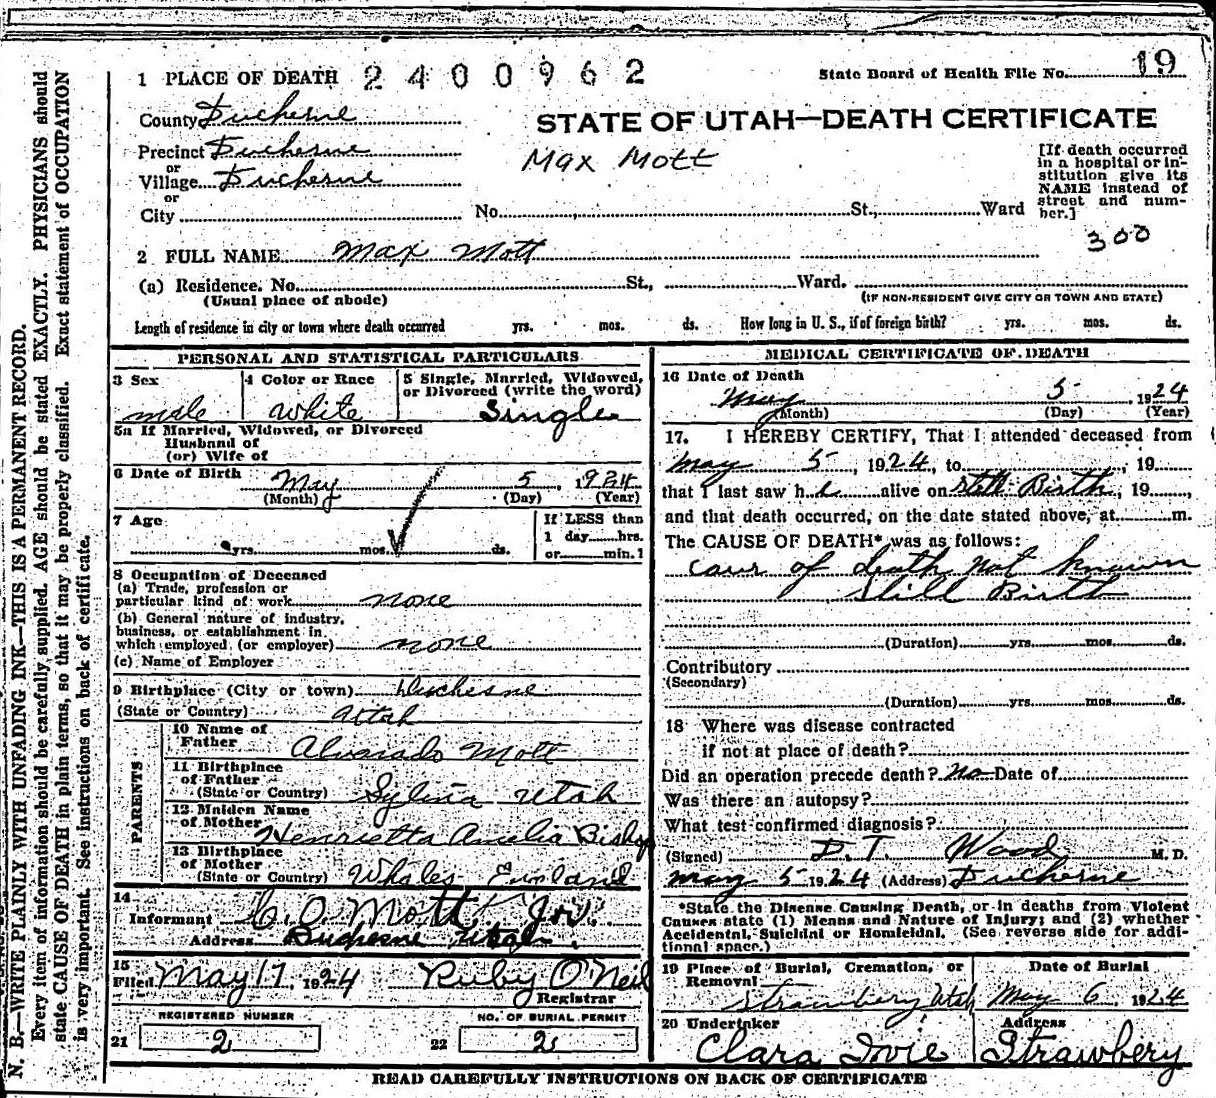 1 PLACE OF DEATH 2400962 State Board of Health File No. 19
County Duchesne
STATE OF UTAH—DEATH CERTIFICATE
Precinct Duchesne
Max Mott
or
Village Duchesne
or
City No. St., Ward
[If death occurred
in a hospital or in-
stitution give its
NAME instead of
street and num-
ber.]
300
2 FULL NAME Max Mott
(a) Residence. No. St., Ward.
(Usual place of abode) (IF NON-RESIDENT GIVE CITY OR TOWN AND STATE)
Length of residence in city or town where death occurred yrs. mos. ds. How long in U. S., if of foreign birth? yrs. mos. ds.
PERSONAL AND STATISTICAL PARTICULARS
3 Sex
male
4 Color or Race
white
5 Single, Married, Widowed,
or Divorced (write the word)
Single
5a If Married, Widowed, or Divorced
Husband of
(or) Wife of
6 Date of Birth May 5, 1924
(Month) (Day) (Year)
7 Age
yrs. mos. ds.
If LESS than
1 day hrs.
or min.
8 Occupation of Deceased
(a) Trade, profession or
particular kind of work none
(b) General nature of industry,
business, or establishment in
which employed (or employer) none
(c) Name of Employer
9 Birthplace (City or town) Duchesne
(State or Country) Uttah
PARENTS
10 Name of
Father Alvarado Mott
11 Birthplace
of Father
(State or Country) Utah
12 Maiden Name
of Mother Henrietta Amelia Bishop
13 Birthplace
of Mother
(State or Country) Whales England
14
Informant C. O. Mott Jr.
Address Duchesne Utah.
15
Filed May 17, 1924 Ruby O'Neil
Registrar
REGISTERED NUMBER NO. OF BURIAL PERMIT
21 2 22 2
MEDICAL CERTIFICATE OF DEATH
16 Date of Death
May 5, 1924
(Month) (Day) (Year)
17. I HEREBY CERTIFY, That I attended deceased from
May 5, 1924, to , 19
that I last saw h alive on Still Birth, 19 ,
and that death occurred, on the date stated above, at m.
The CAUSE OF DEATH* was as follows:
caus of death not known
Still Birth
(Duration) yrs. mos. ds.
Contributory
(Secondary)
(Duration) yrs. mos. ds.
18 Where was disease contracted
if not at place of death?
Did an operation precede death? No Date of
Was there an autopsy?
What test confirmed diagnosis?
(Signed) D. T. Wood M. D.
May 5 1924 (Address) Duchesne
*State the Disease Causing Death, or in deaths from Violent
Causes state (1) Means and Nature of Injury; and (2) whether
Accidental, Suicidal or Homicidal. (See reverse side for addi-
tional space.)
19 Place of Burial, Cremation, or
Removal
Strawbery, Utah
Date of Burial
May 6, 1924
20 Undertaker
Clara Ivie
Address
Strawbery
READ CAREFULLY INSTRUCTIONS ON BACK OF CERTIFICATE
N. B.—WRITE PLAINLY WITH UNFADING INK—THIS IS A PERMANENT RECORD.
Every item of information should be carefully supplied. AGE should be stated EXACTLY. PHYSICIANS should
state CAUSE OF DEATH in plain terms, so that it may be properly classified. Exact statement of OCCUPATION
is very important. See instructions on back of certificate.